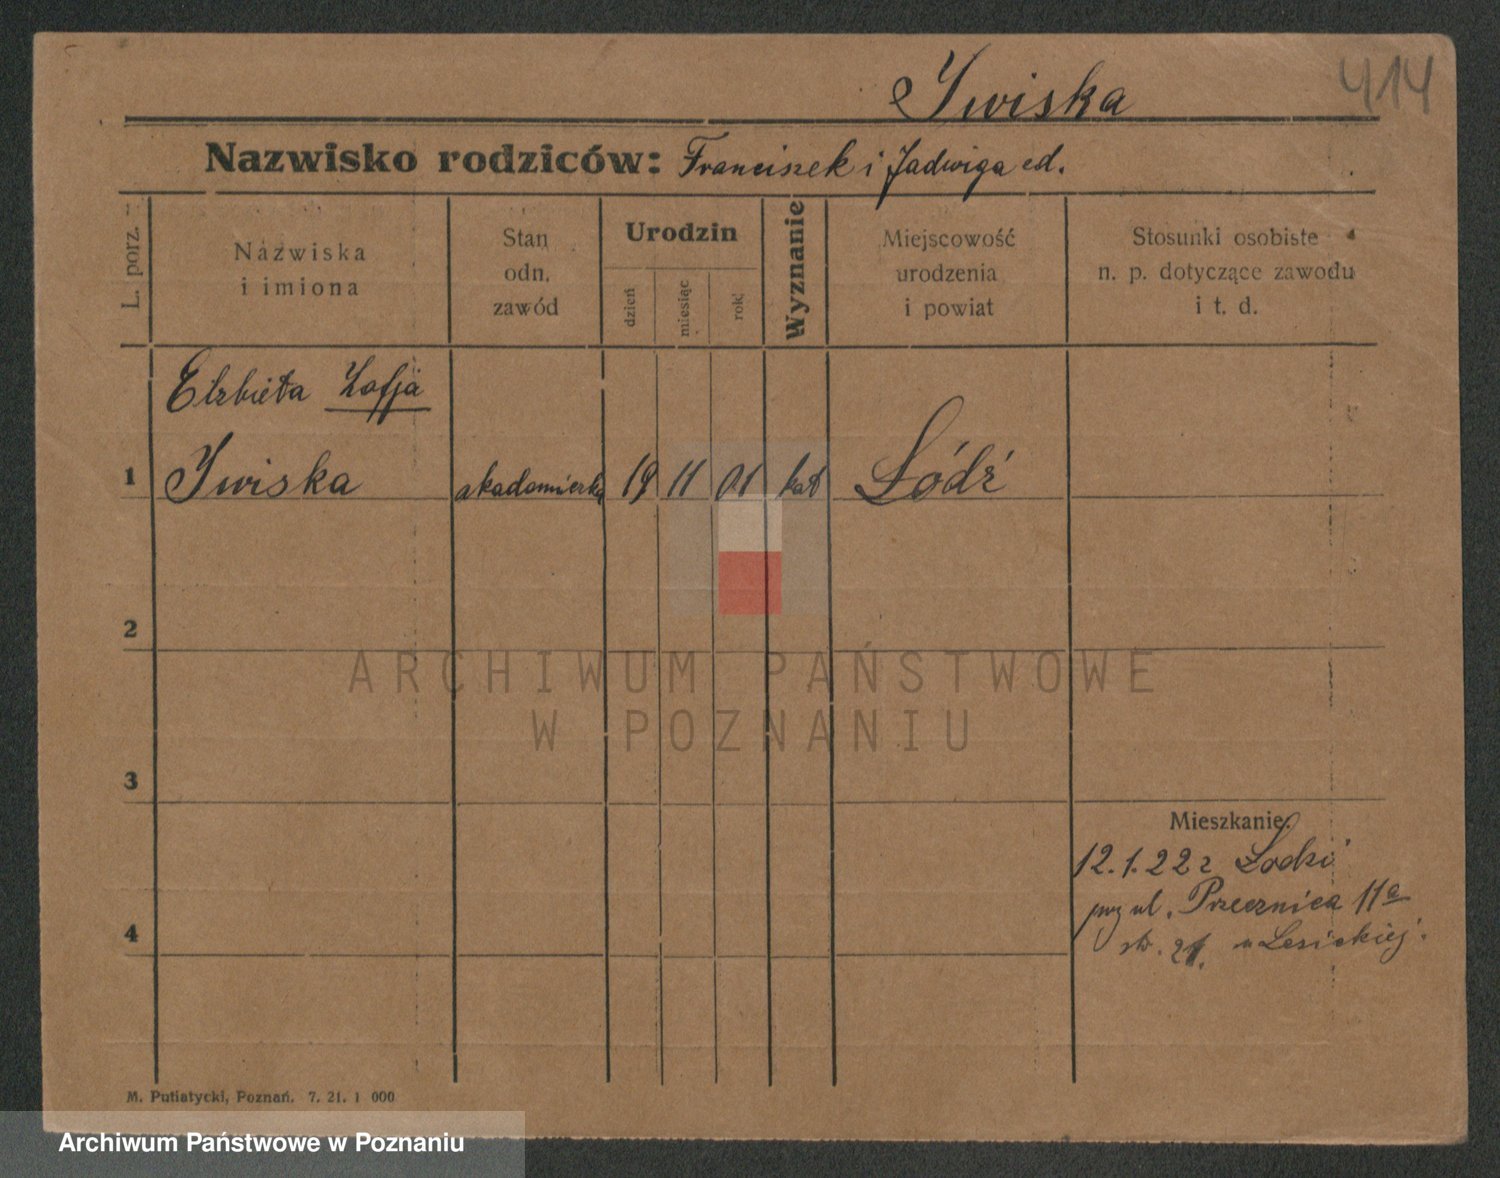 Iwiska
414
Nazwisko rodziców: Franciszek i Jadwiga ed.
L. porz.
Nazwiska
i imiona
Stan
odn.
zawód
Urodzin
dzień
miesiąc
rok
Wyznanie
Miejscowość
urodzenia
i powiat
Stosunki osobiste
n. p. dotyczące zawodu
i t. d.
Elzbieta Zofja
1 Iwiska akademiczka 19 11 01 kat Łódź
2
ARCHIWUM PAŃSTWOWE
W POZNANIU
3
Mieszkanie:
12.1.22 z Łodzi
ul. Przecznica 11a
4
u Lesickiej.
M. Putiatycki, Poznań. 7. 21. 1 000
Archiwum Państwowe w Poznaniu